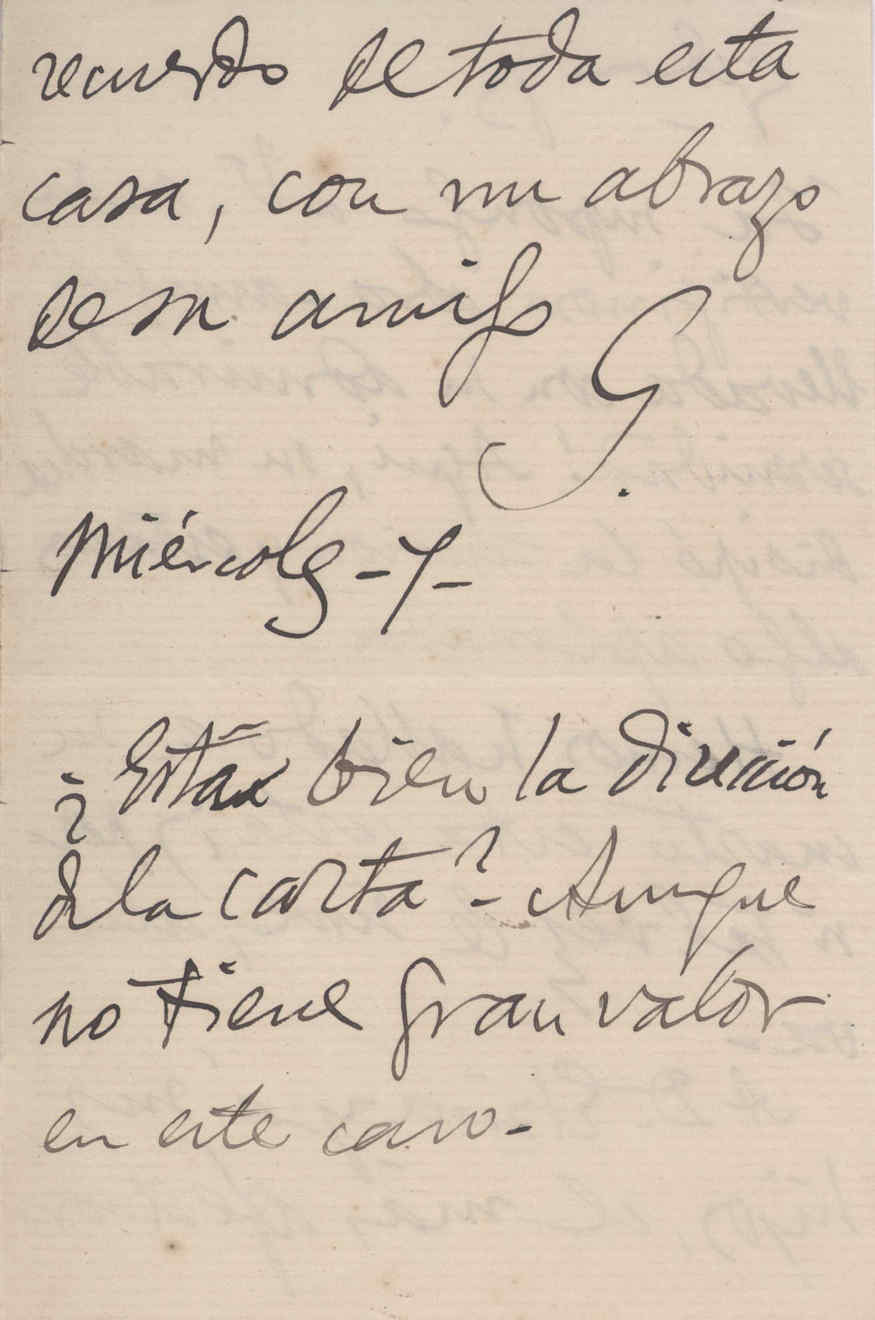 recuerdo de toda esta
casa, con un abrazo
de su amigo
G.
Miércoles - 7 -
¿Está bien la dirección
de la carta? - Aunque
no tiene gran valor
en este caso -